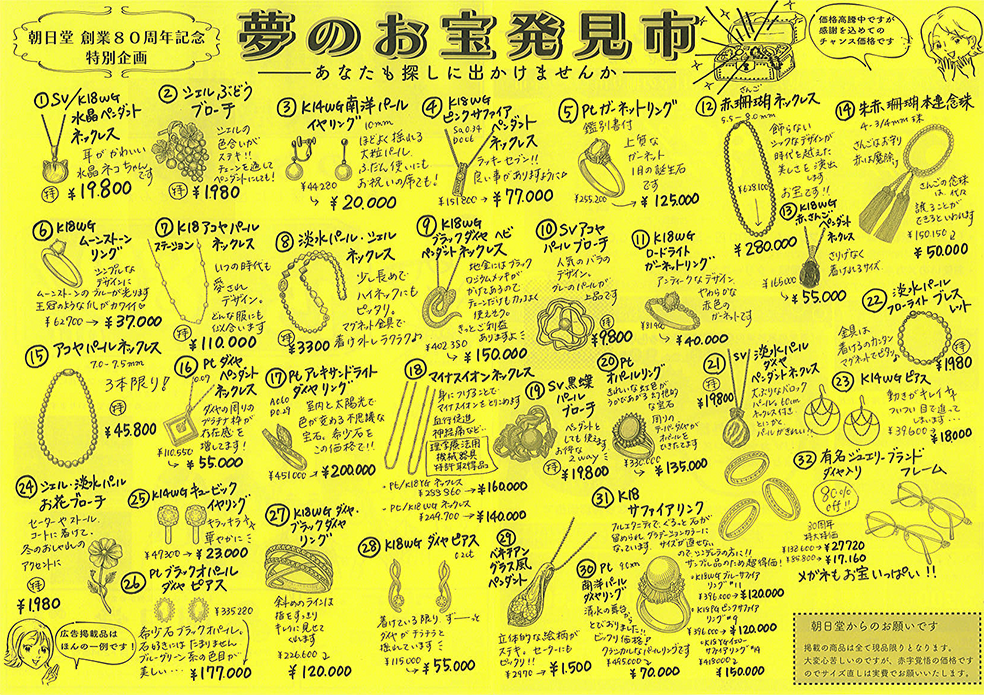 朝日堂 創業80周年記念
特別企画
夢のお宝発見市
あなたも探しに出かけませんか
価格高騰中ですが
感謝を込めての
チャンス価格です
① SV/K18WG
水晶ペンダント
ネックレス
耳がかわいい
水晶ネコちゃんです
¥19800
② シェルぶどう
ブローチ
シェルの
色合いが
ステキ!!
チェーンを通して
ペンダントにしても!
¥1980
③ K14WG南洋パール
イヤリング
10mm
ほどよく揺れる
大粒パール
ふだん使いにも
お祝いの席でも!
¥44280
→ ¥20.000
④ K18WG
ピンクサファイア
ペンダント
ネックレス
Sa0.34
D0.07
ラッキーセブン!!
良い事がありますように
¥151800 → ¥77.000
⑤ Ptガーネットリング
鑑別書付
上質な
ガーネット
1月の誕生石
です
¥255200
→ ¥125.000
⑫ 赤珊瑚ネックレス
さんご
5.5-8.0mm
飾らない
シックなデザインが
時代を越えた
美しさを演出
します
お宝です!!
¥628100
¥280.000
⑭ 朱赤珊瑚本連念珠
4-3/4mm珠
さんごはお守り
赤は魔除け
さんごの念珠
は、代々
譲ることが
できるといわれます
¥150.150
¥50.000
⑥ K18WG
ムーンストーン
リング
シンプルな
デザインに
ムーンストーンのブルーが光ります
王冠のようなカしがカワイイ
¥62700 → ¥37.000
⑦ K18アコヤパール
ステーションネックレス
いつの時代も
愛され
デザイン。
どんな服にも
似合います
¥110.000
⑧ 淡水パール・シェル
ネックレス
少し長めで
ハイネックにも
ピッタリ。
マグネット金具で
着け外しラクラク♪
¥3300
⑨ K18WG
ブラックダイヤ ヘビ
ペンダントネックレス
地金にはブラック
ロジウムメッキが
かけてあるので
チェーンだけもカッコよく
使えそう。
きっとご利益
ありますよ
¥402380
→ ¥150.000
⑩ SVアコヤ
パールブローチ
人気のバラの
デザイン。
グレーのパールが
上品です
¥9800
⑪ K18WG
ロードライト
ガーネットリング
アンティークなデザイン
やわらかな
赤色の
ガーネットです
→ ¥40.000
⑬ K18WG
赤さんご
ペンダント
ネックレス
さりげなく
着けれるサイズ
¥165000
→ ¥55.000
㉒ 淡水パール
フローライト ブレス
レット
金具は
着けるのカンタン
マグネットでピタッ
¥1980
⑮ アコヤパールネックレス
7.0-7.5mm
3本限り!
¥45.800
⑯ Ptダイヤ
ペンダント
ネックレス
ダイヤの周りの
プラチナ枠が
存在感を
増してます!
¥110.550
→ ¥55.000
⑰ Ptアレキサンドライト
ダイヤリング
室内と太陽光で
色が変わる不思議な
宝石。希少石を
この価格で!!
¥451000 → ¥200.000
⑱ マイナスイオンネックレス
身につけることで
マイナスイオンをとりこめます
血行促進
神経痛など…
理学療法用
機械器具
特許取得品
・Pt/K18YG ネックレス
¥283.360 → ¥160.000
・Pt/K18WG ネックレス
¥249.700 → ¥140.000
⑲ SV黒蝶
パール
ブローチ
ペンダントと
しても使えます
お得な
2way
¥19800
⑳ Pt
オパールリング
きれいな虹色が
うかびあがる幻想的
な宝石
周りの
テーパーダイヤが
オパールを
ひきたてます
¥330.000
→ ¥135.000
㉑ SV
淡水パール
ペンダント
ネックレス
大ぶりなバロック
パール。60cm
ネックレス付き。
とにかく
パールがきれい!!
¥19800
㉓ K14WGピアス
動きがキレイで
ついつい目で追って
しまいます…
¥39600
→ ¥18000
㉔ シェル・淡水パール
お花ブローチ
セーターやストール、
コートに着けて。
冬のおしゃれの
アクセントに
¥1.980
㉕ K14WGキュービック
イヤリング
キラッキラで
華やかに
¥47300 → ¥23.000
㉖ Ptブラックオパール
ダイヤ ピアス
¥335280
希少石ブラックオパール。
石好きにはたまりません
ブルーグリーン系の色目が
美しい… → ¥177.000
㉗ K18WGダイヤ・
ブラックダイヤ
リング
斜めのラインは
指をすっきり
キレイに見せて
くれます
¥226600
→ ¥120.000
㉘ K18WG ダイヤピアス
0.2ct
着けている限り、ずーっと
ダイヤがチラチラと
揺れています
¥115.000
→ ¥55.000
㉙
ベネチアン
グラス風
ペンダント
立体的な絵柄が
ステキ。セーターにも
ピッタリ!!
¥2970 → ¥1.500
㉚ Pt 9cm
南洋パール
ダイヤリング
清水の舞台
から
とびおりました!!
ビックリ価格♪
クラシカルなパールリングです
¥495.000
→ ¥70.000
㉛ K18
サファイアリング
フルエタニティで、ぐるっと石が
留められ、グラデーションカラーに
なっています。サイズが直せない
ので、シンデレラの方に!!
サンプル品のため超得価!
・K18WGブルーサファイア
リング #11
¥396000 → ¥120.000
・K18PGピンクサファイア
リング #9
¥396000 → ¥120.000
・K18YGイエロー
サファイアリング #9
¥418000 → ¥150.000
㉜ 有名ジュエリーブランド
ダイヤ入り
フレーム
80%
off!!
30周年
特大特価
¥138600 → ¥27720
¥85800 → ¥17.160
メガネもお宝いっぱい!!
広告掲載品は
ほんの一例です!
朝日堂からのお願いです
掲載の商品は全て現品限りとなります。
大変心苦しいのですが、赤字覚悟の価格です
のでサイズ直しは実費でお願いいたします。